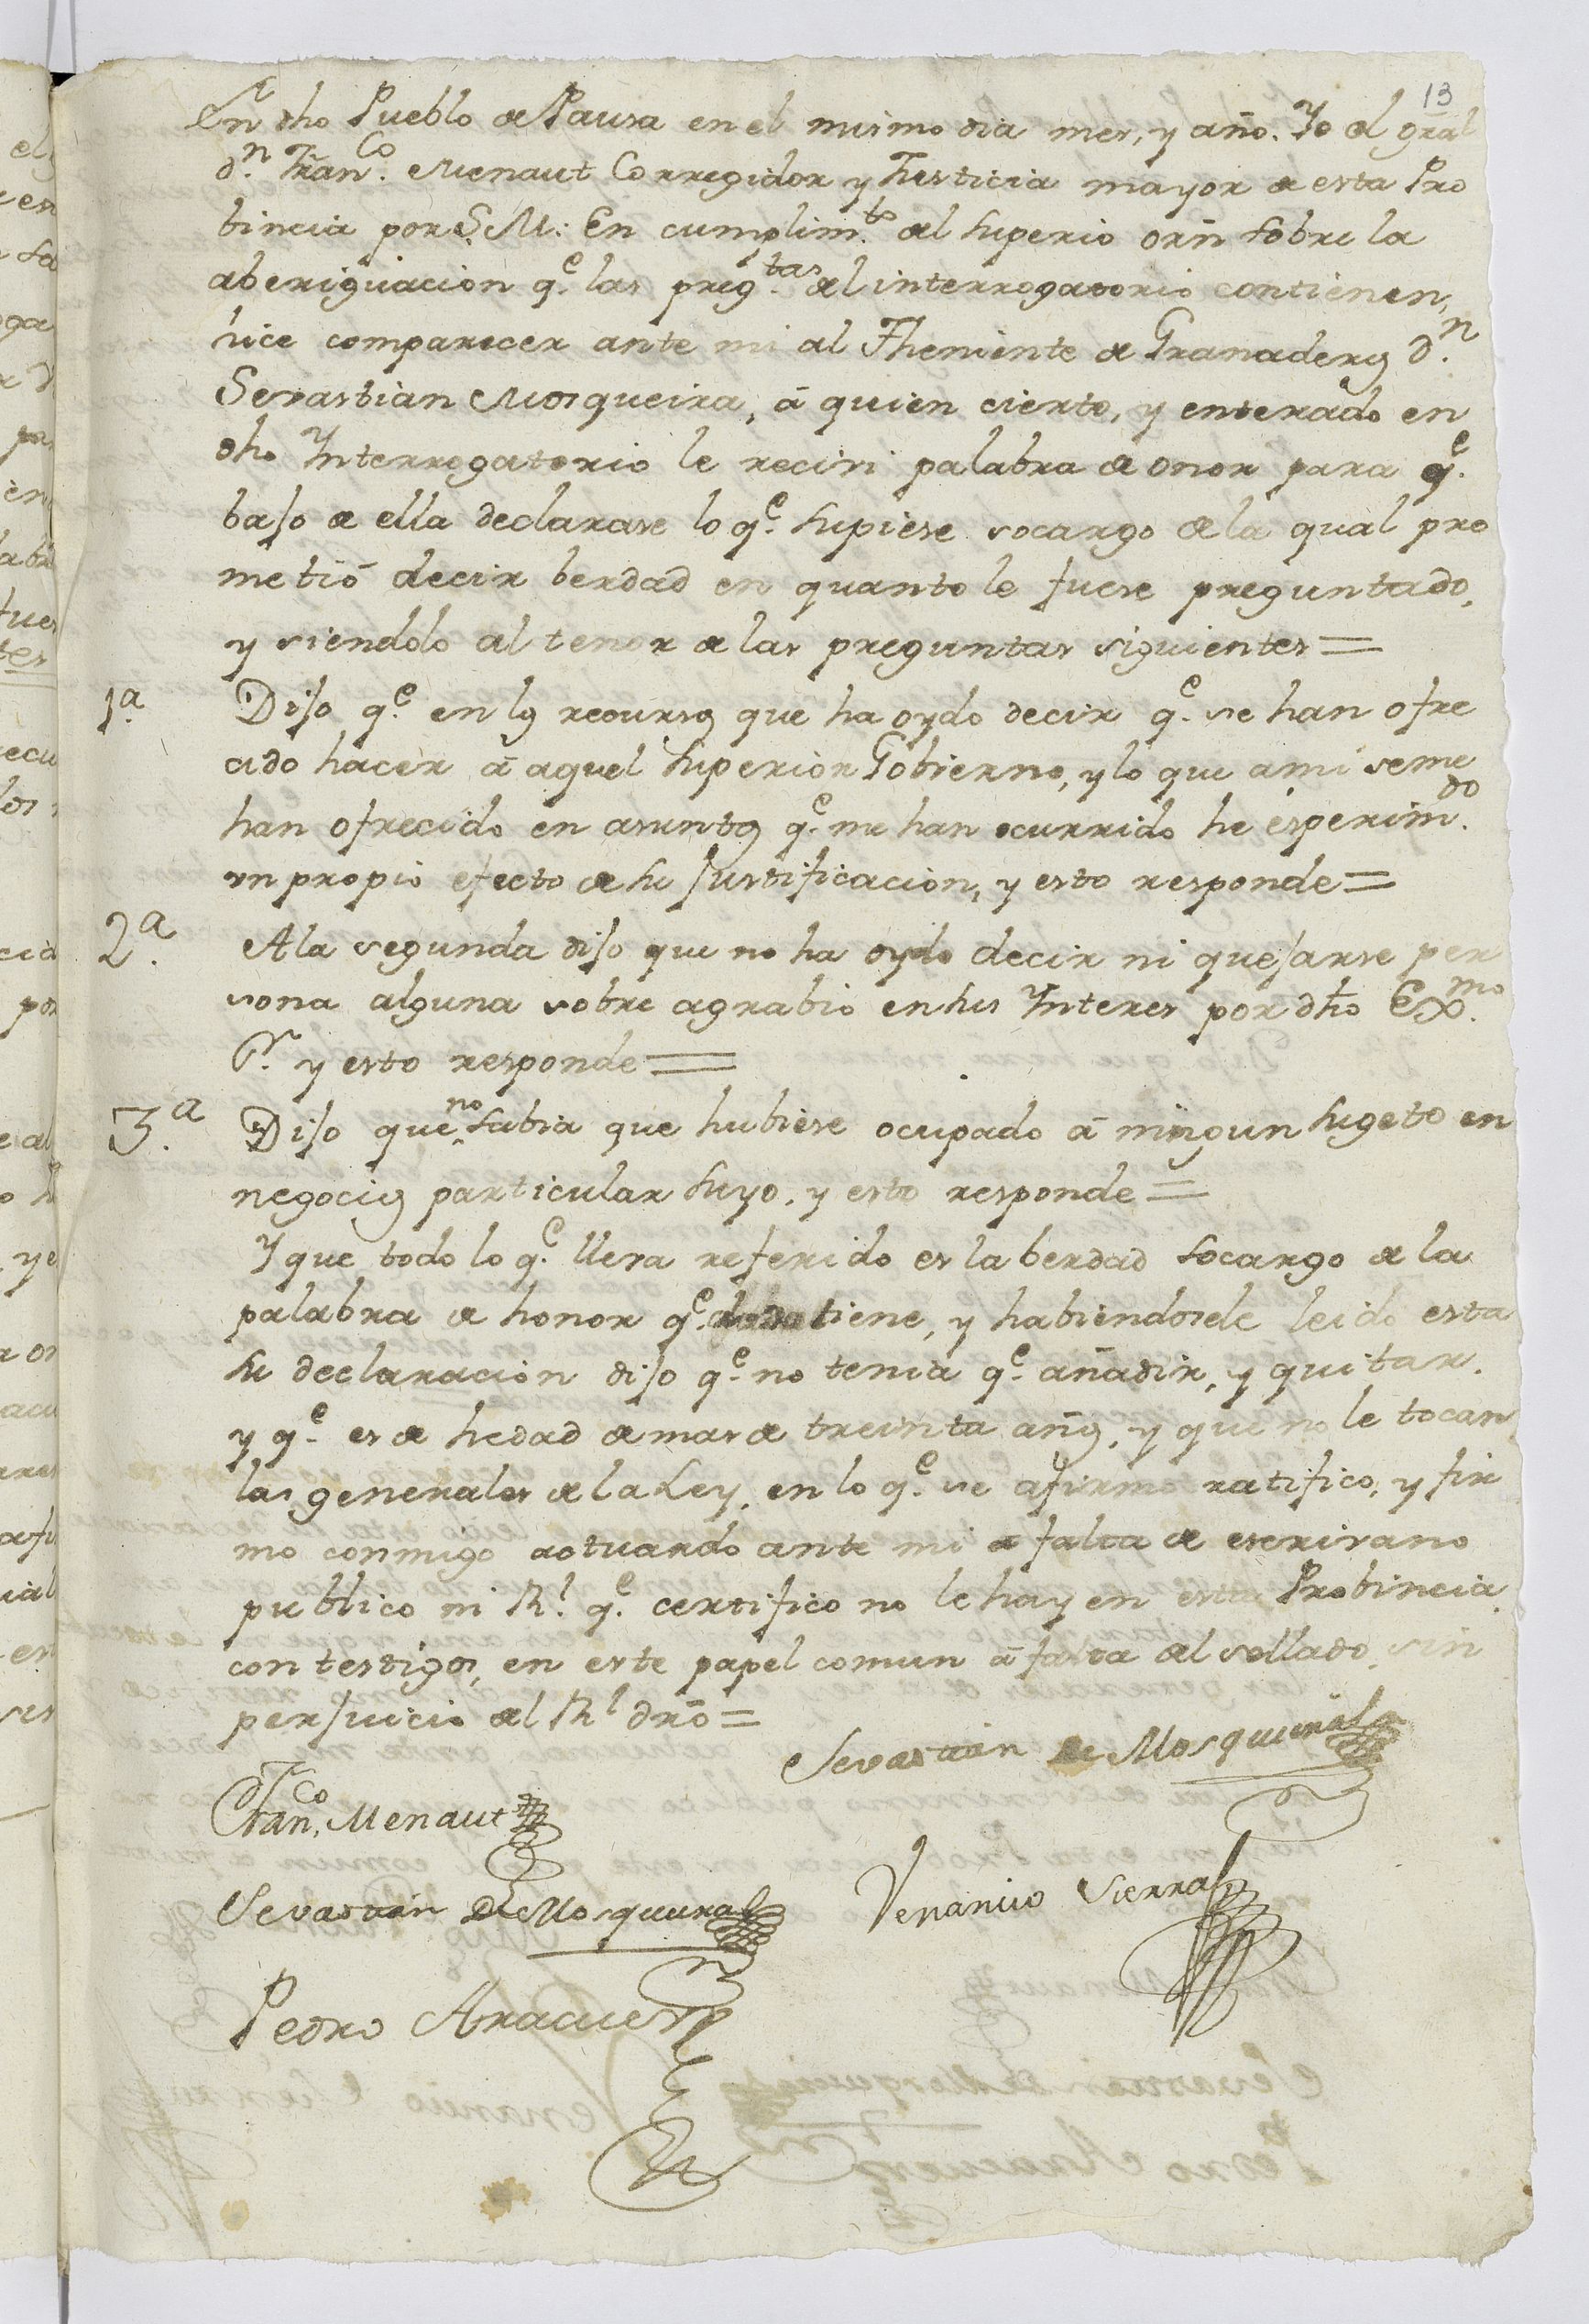 13
En dho Pueblo de Pausa en el mismo dia mes, y año. Yo el gral
dn. Franco. Menaut Corregidor y Thesticia mayor de esta Pro
bincia por S.M: En cumplimto. del superio orn sobre la
aberiguacion qe. las pregtas. del interrogatorio contienen,
hice comparecer ante mi al Theniente de Granaderos dn.
Sevastian Mosqueira, á quien cierto, y enterado en
dho Ynterrogatorio le recivi palabra de onor para qe.
bajo de ella declarase lo qe. supiese socargo de la qual pro
metió decir berdad en quanto le fuese preguntado,
y siendolo al tenor de las preguntas siguientes=
1a. Dijo qe. en los recursos que ha oydo decir qe. se han ofre
cido hacer á aquel superior Gobierno, y lo que ami seme
han ofrecido en asuntos qe. me han ocurrido he esperimdo.
un propio efecto de su justificacion, y esto responde=
2a. Ala segunda dijo que no ha oydo decir ni quejarse per
sona alguna sobre agrabio en sus Ynteres por dho Exmo.
Sr. y esto responde=
3a. Dijo que no sabia que hubiese ocupado á ningun sugeto en
negocios particular suyo, y esto responde=
Y que todo lo qe. lleva referido es la berdad socargo de la
palabra de honor qe. dada tiene, y habiendosele leido esta
su declaracion dijo qe. no tenia qe. añadir, y quitar.
y qe. es de hedad de mas de treinta años, y que no le tocan
las generales de la Ley, en lo qe. se afirmo ratifico, y fir
mo conmigo actuando ante mi a falta de escrivano
publico ni Rl. qe. certifico no le hay en esta Probincia,
con testigos, en este papel comun á falta del sellado, sin
perjuicio del Rl dro=
Sevastian de Mosqueira
Franco. Menaut
Sevastian De Mosqueira
Venancio Sierra
Pedro Aracues